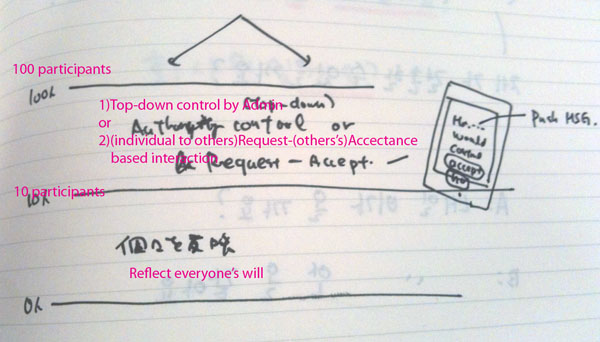 100 participants
100人
1)Top-down control by Admin
(top-down)
or
Authority control or
2)(individual to others)Request-(others's)Accectance
based interaction
Request - Accept.
Push MSG.
would
accept
10 participants
10人
個々を反映
Reflect everyone's will
0人